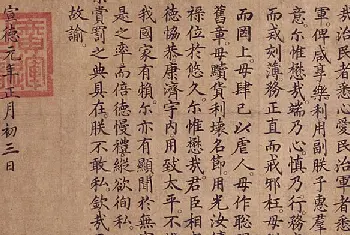 我治民者悉心愛民治軍者悉
軍俾咸享樂利用副朕子惠羣
意尔惟懋哉端乃心慎乃行務
而戒刻薄務正直而戒邪枉毋
而罔上毋肆己以虐人毋作聰
舊章毋黷貨利壞名節用光汝
祿位於悠久尔惟懋哉君臣相
德恊恭康濟宇內用致太平不
我國家有賴尔亦有顯聞於無
是之率而倍德慢禮縱欲徇私
宗賞罰之典具在朕不敢私欽哉
故諭
宣德元年正月初三日